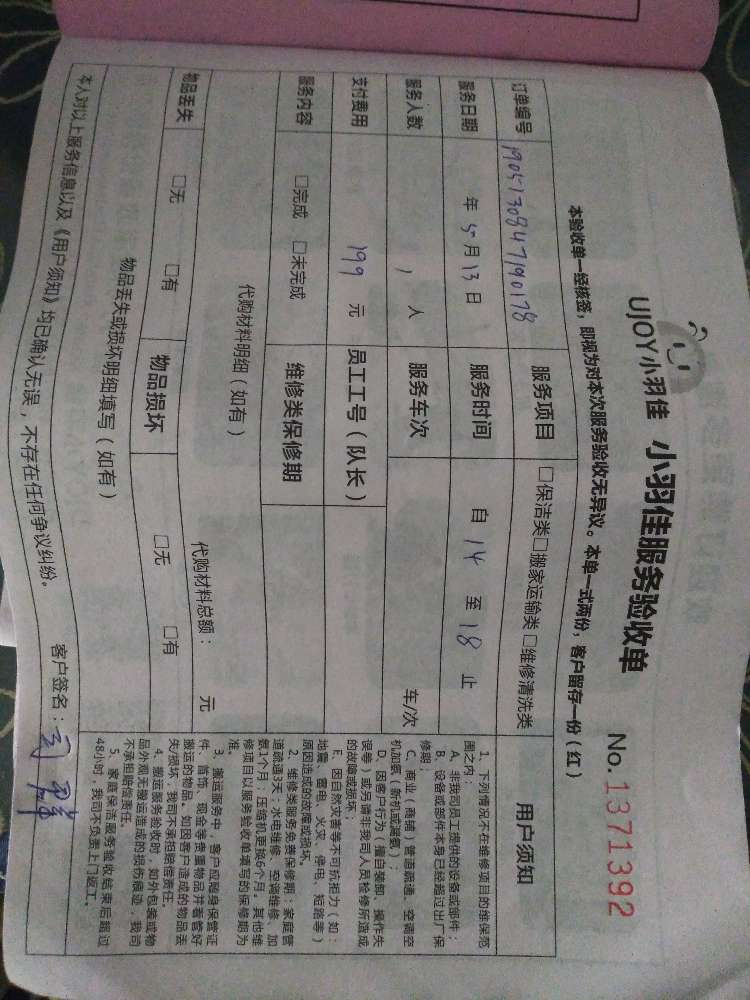 UJOY小羽佳 小羽佳服务验收单
No. 1371392
本验收单一经核签，即视为对本次服务验收无异议。本单一式两份，客户留存一份（红）
订单编号 1905130847190178 服务项目 □保洁类□搬家运输类□维修清洗类
服务日期 年 5月13日 服务时间 自 14 至 18 止
服务人数 1 人 服务车次 车/次
支付费用 199 元 员工工号（队长）
服务内容 □完成 □未完成 维修类保修期
代购材料明细（如有） 代购材料总额： 元
物品丢失 □无 □有 物品损坏 □无 □有
物品丢失或损坏明细填写（如有）
本人对以上服务信息以及《用户须知》均已确认无误，不存在任何争议纠纷。
客户签名：
用户须知
1、下列情况不在维修项目的维保范
围之内：
A、非我司员工提供的设备或部件；
B、设备或部件本身已经超过出厂保
修期；
C、商业（商铺）管道疏通、空调空
机加氨（新机或漏氨）；
D、因客户行为（擅自装卸、操作失
误等）或另请非我司人员检修所造成
的故障或损坏
E、因自然灾害等不可抗拒力（如：
地震、雷电、火灾、停电、短路等）
原因造成的故障或损坏。
2、维修类服务免费保修期：家庭管
道疏通3天；水电维修、空调维修、加
氨1个月；压缩机更换6个月。其他维
修项目以服务验收单填写的保修期为
准。
3、搬运服务中，客户应随身保管证
件、首饰、现金等贵重物品并看管好
搬运的物品。如因客户造成的物品丢
失/损坏，我司不承担赔偿责任。
4、搬运服务验收时，如外包装或物
品外观无搬运造成的损伤痕迹，我司
不承担赔偿责任。
5、家庭保洁服务验收结束后超过
48小时，我司不负责上门返工。